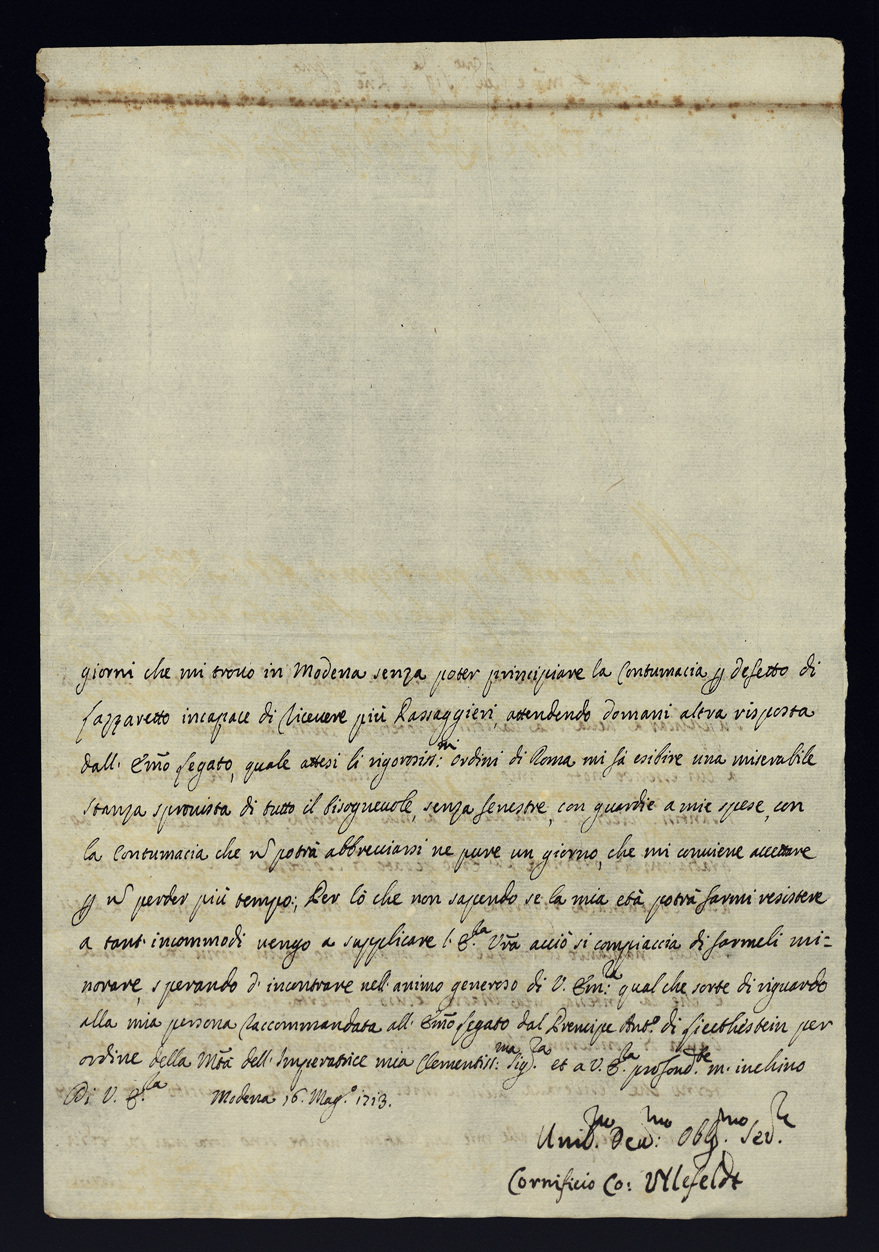 giorni che mi trouo in Modena senza poter principiare la Contumacia p defetto di
Lazzaretto incapace di riceuere più Passaggieri, attendendo domani altra risposta
dall' Em̃o Legato, quale attesi li rigorosiss:mi ordini di Roma mi fà esibire una miserabile
stanza sprouista di tutto il bisogneuole, senza fenestre, con guardie a mie spese, con
la Contumacia che ñ potrà abbreuiarsi ne pure un giorno, che mi conuiene accettare
p ñ perder più tempo; Per lò che non sapendo se la mia età potrà farmi resistere
a tant' incommodi uengo a supplicare l' E.la Vr̃a acciò si compiaccia di farmeli mi=
norare, sperando d' incontrare nell' animo generoso di V. Em:za qual che sorte di riguardo
alla mia persona raccommandata all' Em̃o Legato dal Prencipe Ant.o di Liecthestein per
ordine della Mt̃à dell' Imperatrice mia Clementiss:ma Sig.ra et a V. E.la profond.te m' inchino
Di V. E.la Modena 16. Mag.o 1713.
Umil.mo Deu:mo Obl.mo Ser.re
Cornificio Co: Vllefeldt